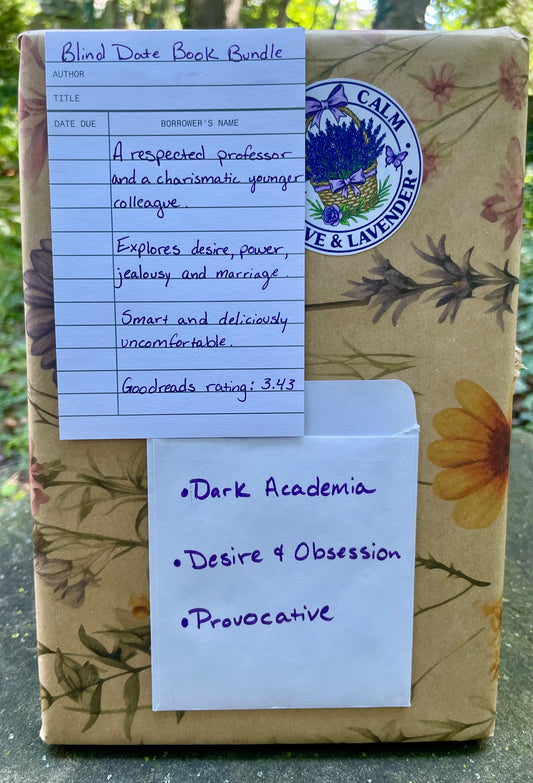 Blind Date Book Bundle
AUTHOR
TITLE
DATE DUE BORROWER'S NAME
A respected professor
and a charismatic younger
colleague.
Explores desire, power,
jealousy and marriage.
Smart and deliciously
uncomfortable.
Goodreads rating: 3.43
CALM •
VE & LAVENDER •
• Dark Academia
• Desire & Obsession
• Provocative